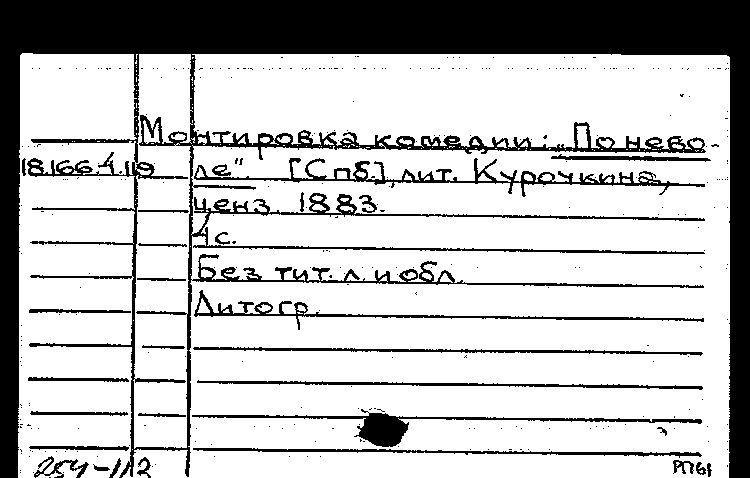 Монтировка комедии: „Понево-
18.166.4.119 ле“. [Спб.], лит. Курочкина,
ценз. 1883.
4 с.
Без тит. л. и обл.
Литогр.
254-112
РП61